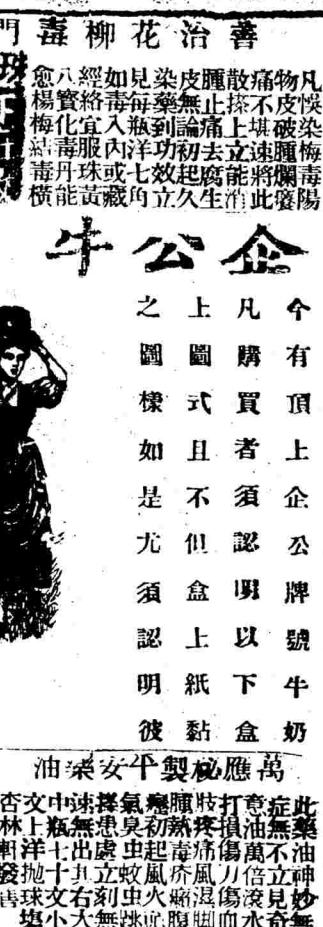 善治花柳毒門
凡悞染梅毒陽
物皮破腫爛癢
痛不堪速將此
散搽上立能消
腫止痛去腐生
皮無論初起久
染藥到功效立
見每瓶洋七角
如毒入內或藏
經絡宜服珠黃
八寳化毒丹能
愈楊梅結毒橫
企公牛
今有頂上企公牌號牛奶
凡購買者須認明以下盒
上圖式且不但盒上紙黏
之圖樣如是尤須認明彼
萬應秘製平安藥油
此藥油神妙無
症無不立見奇
意油萬倍滾水
打損傷刀傷血
肢疼痛風濕脚
腫熱毒疥癩腹
癧初起風火
氣臭虫蚊虫跳
搽患處立刻無
速無出其右大
中瓶七十文小
文上洋抛球塲
杏林軒發售